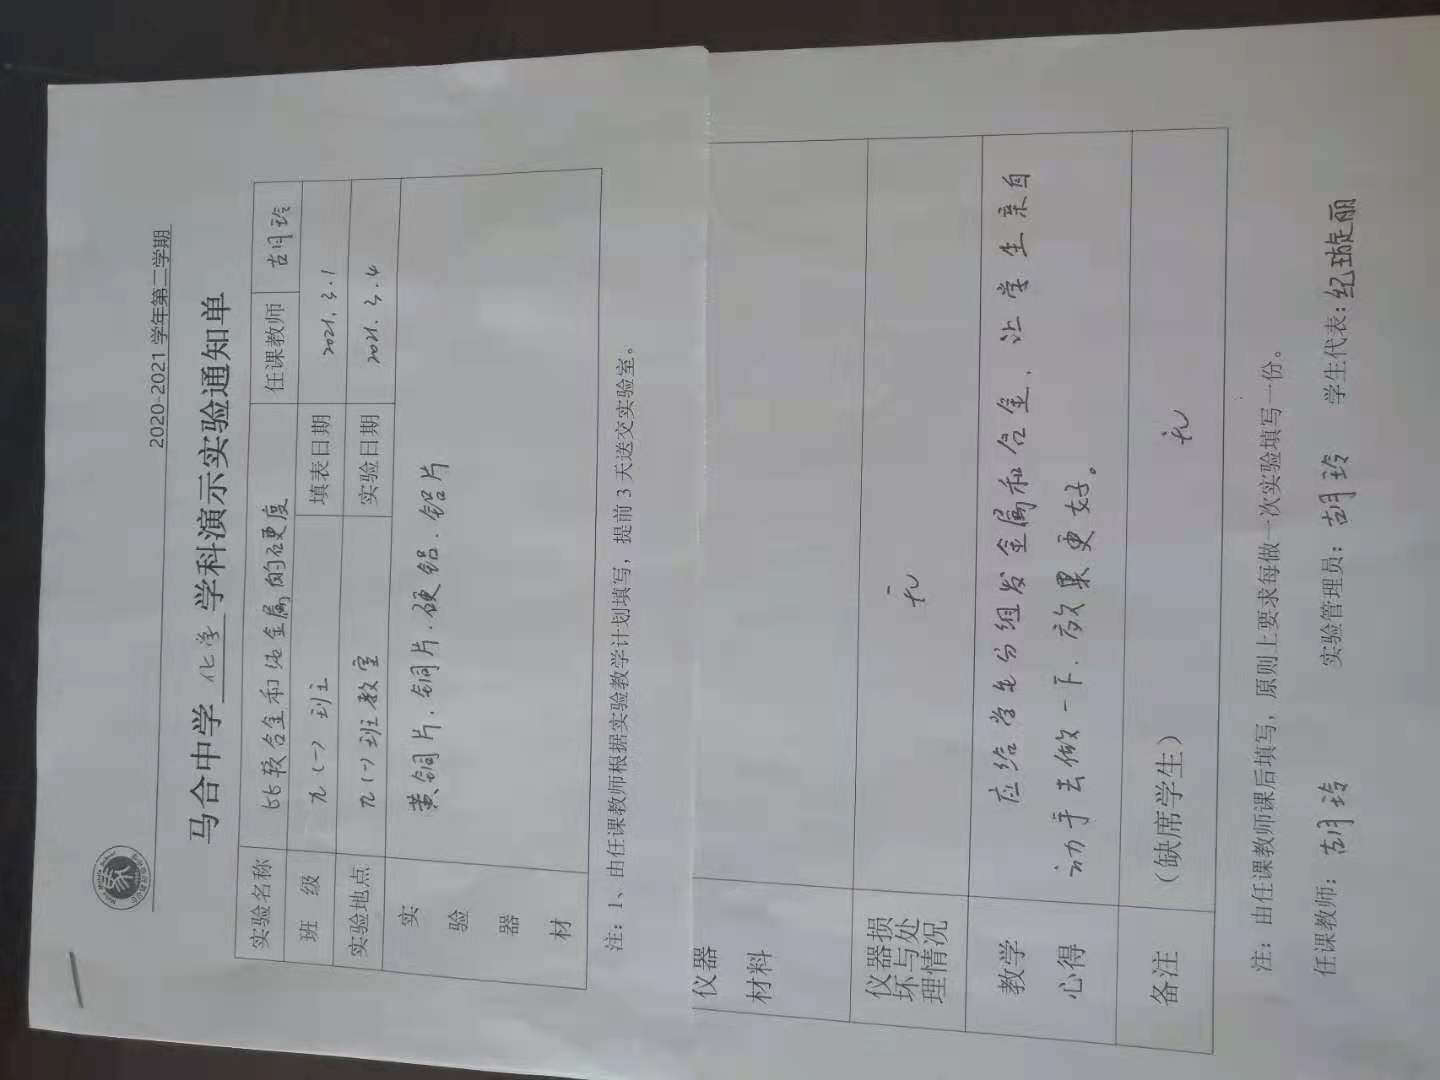 2020-2021 学年第二学期
马合中学 化学 学科演示实验通知单
实验名称 比较合金和纯金属的硬度 任课教师 胡玲
班 级 九(一)班 填表日期 2021.3.1
实验地点 九(一)班教室 实验日期 2021.3.4
实验器材 黄铜片.铜片.硬铝.铝片
注：1、由任课教师根据实验教学计划填写，提前 3 天送交实验室。
仪器
材料
仪器损坏与处理情况 无
教学心得 应给学生分组发金属和合金、让学生亲自
动手去做一下、效果更好。
备注 （缺席学生） 无
注：由任课教师课后填写，原则上要求每做一次实验填写一份。
任课教师: 胡玲 实验管理员: 胡玲 学生代表: 纪璇丽